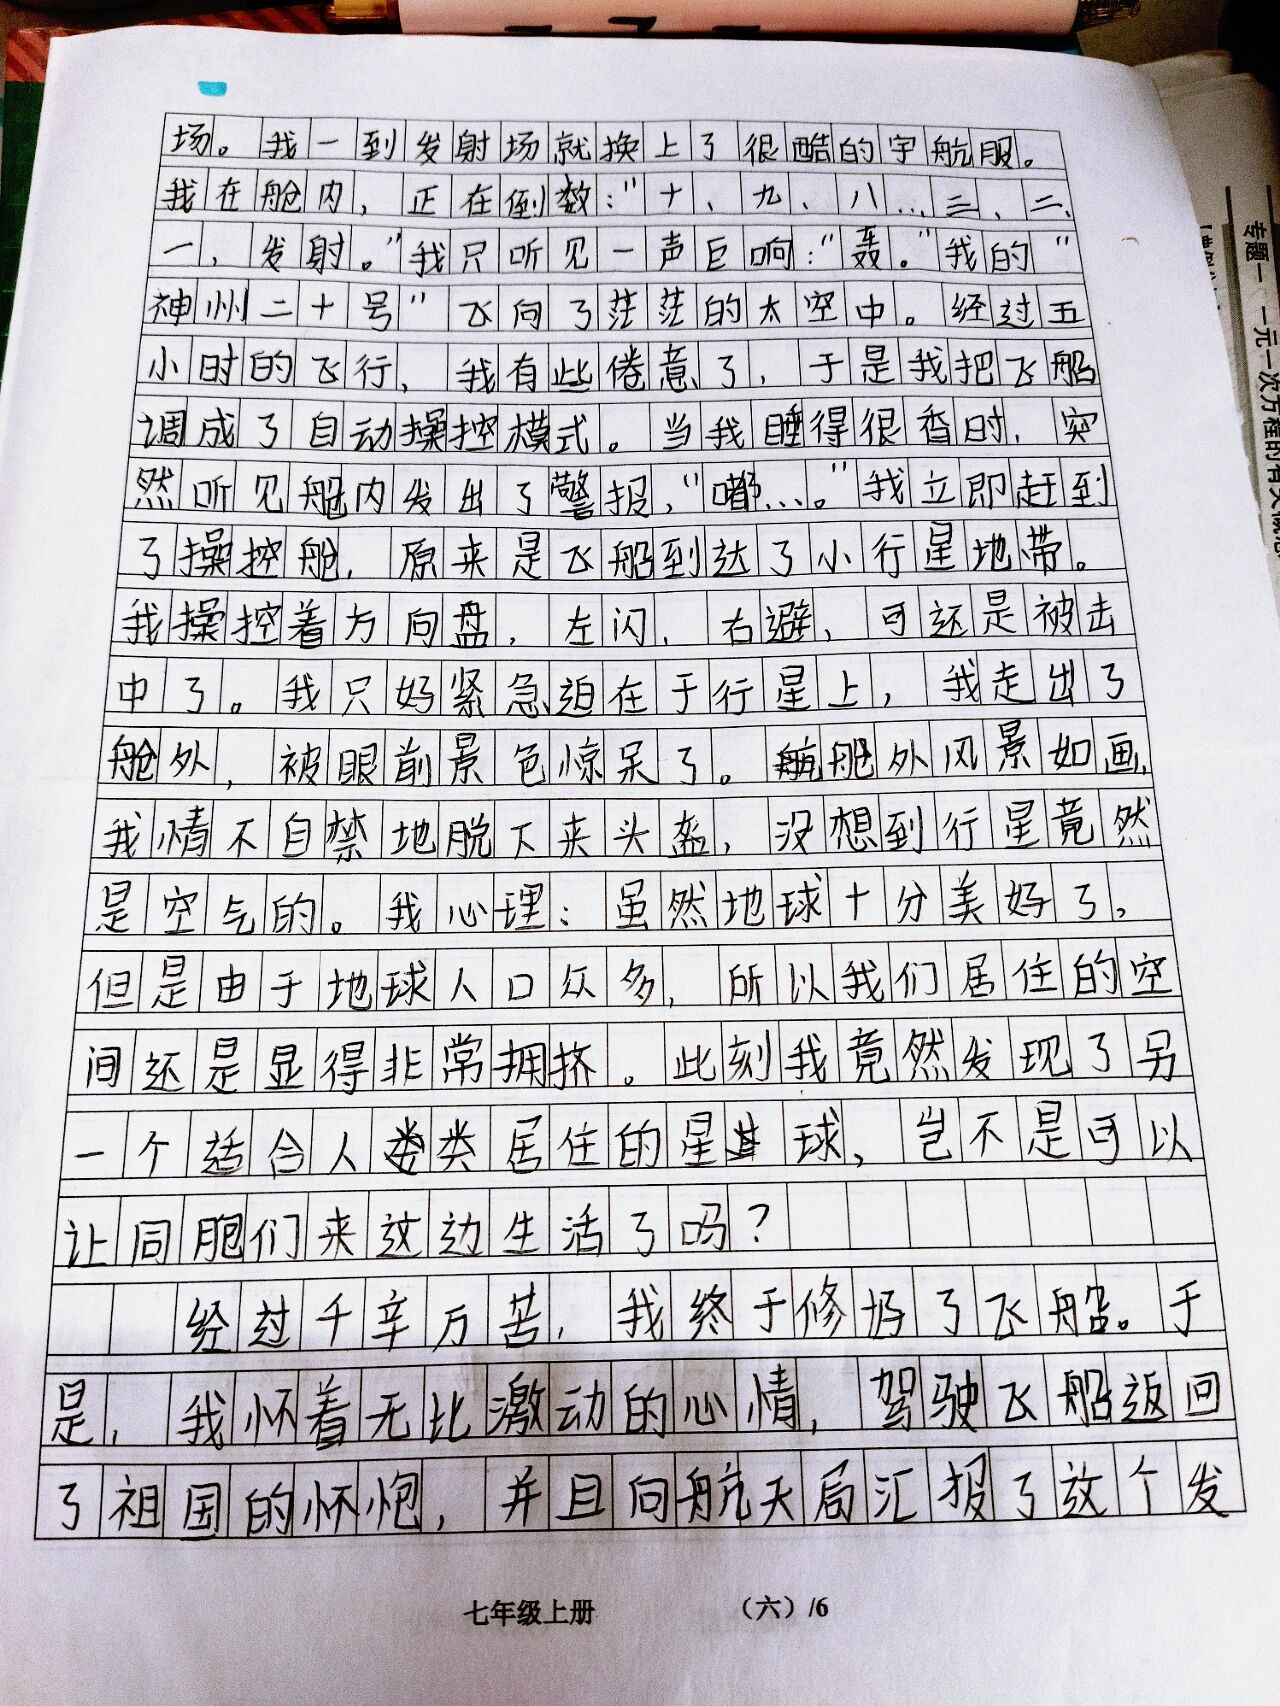 场。我一到发射场就换上了很酷的宇航服。
我在舱内，正在倒数：“十、九、八…三、二、
一，发射。”我只听见一声巨响：“轰。”我的“
神州二十号”飞向了茫茫的太空中。经过五
小时的飞行，我有些倦意了，于是我把飞船
调成了自动操控模式。当我睡得很香时，突
然听见舱内发出了警报，“嘟…。”我立即赶到
了操控舱，原来是飞船到达了小行星地带。
我操控着方向盘，左闪，右避，可还是被击
中了。我只好紧急迫在于行星上，我走出了
舱外，被眼前景色惊呆了。舱外风景如画，
我情不自禁地脱下来头盔，没想到行星竟然
是空气的。我心理：虽然地球十分美好了，
但是由于地球人口众多，所以我们居住的空
间还是显得非常拥挤。此刻我竟然发现了另
一个适合人类居住的星球，岂不是可以
让同胞们来这边生活了吗？
经过千辛万苦，我终于修好了飞船。于
是，我怀着无比激动的心情，驾驶飞船返回
了祖国的怀炮，并且向航天局汇报了这个发
七年级上册 （六）/6
专题一 一元一次方程的有关